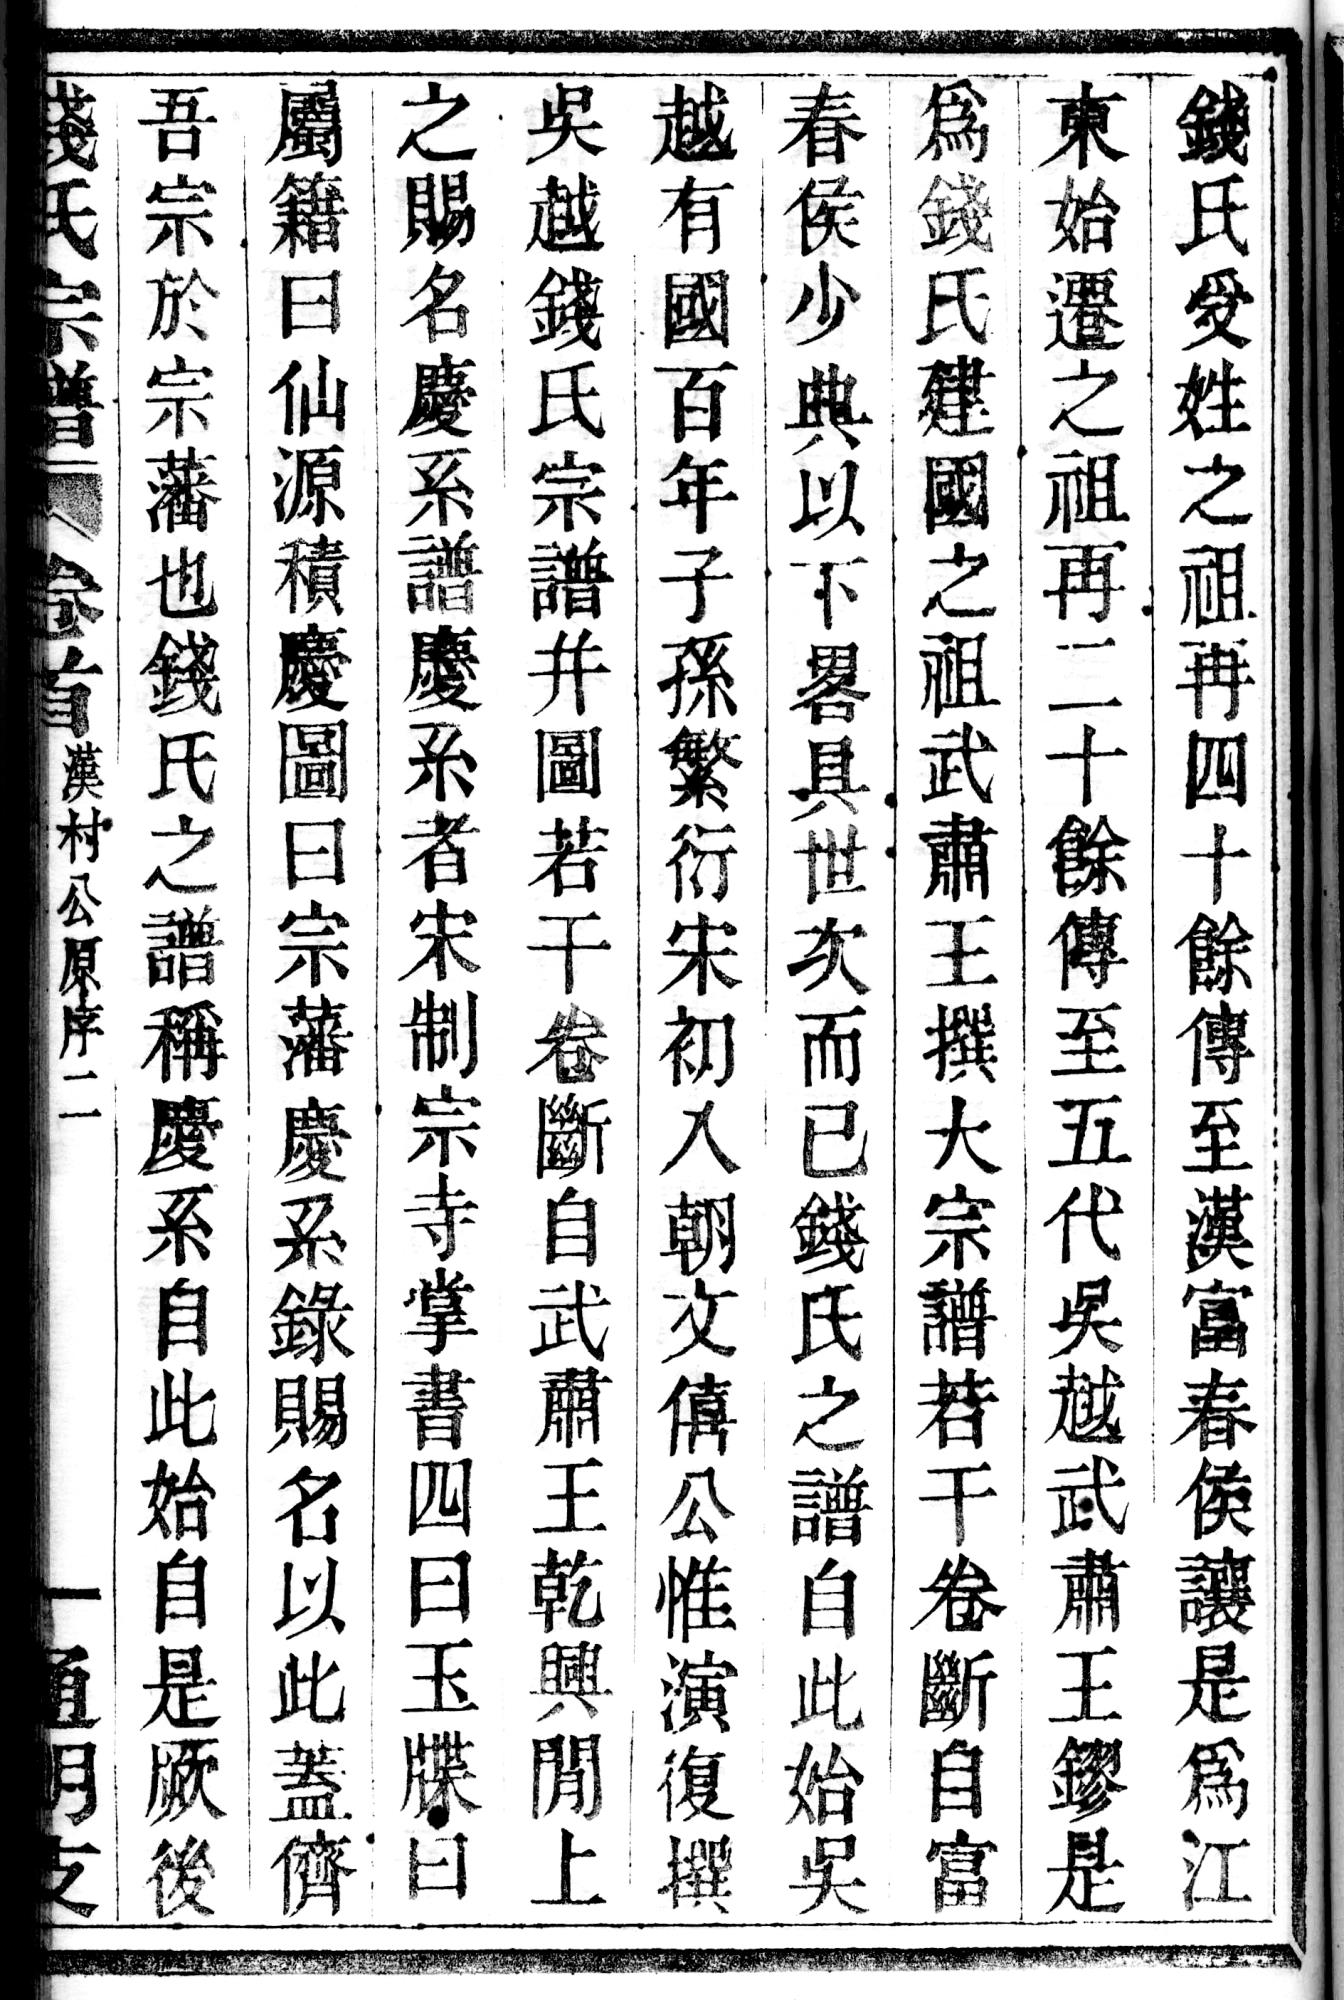 錢氏受姓之祖再四十餘傳至漢富春侯讓是爲江
東始遷之祖再二十餘傳至五代吳越武肅王鏐是
爲錢氏建國之祖武肅王撰大宗譜若干卷斷自富
春侯少典以下畧具世次而已錢氏之譜自此始吳
越有國百年子孫繁衍宋初入朝文僖公惟演復撰
吳越錢氏宗譜并圖若干卷斷自武肅王乾興間上
之賜名慶系譜慶系者宋制宗寺掌書四曰玉牒曰
屬籍曰仙源積慶圖曰宗藩慶系錄賜名以此蓋儕
吾宗於宗藩也錢氏之譜稱慶系自此始自是厥後
錢氏宗譜 卷首 漢村公原序二 一 通明支